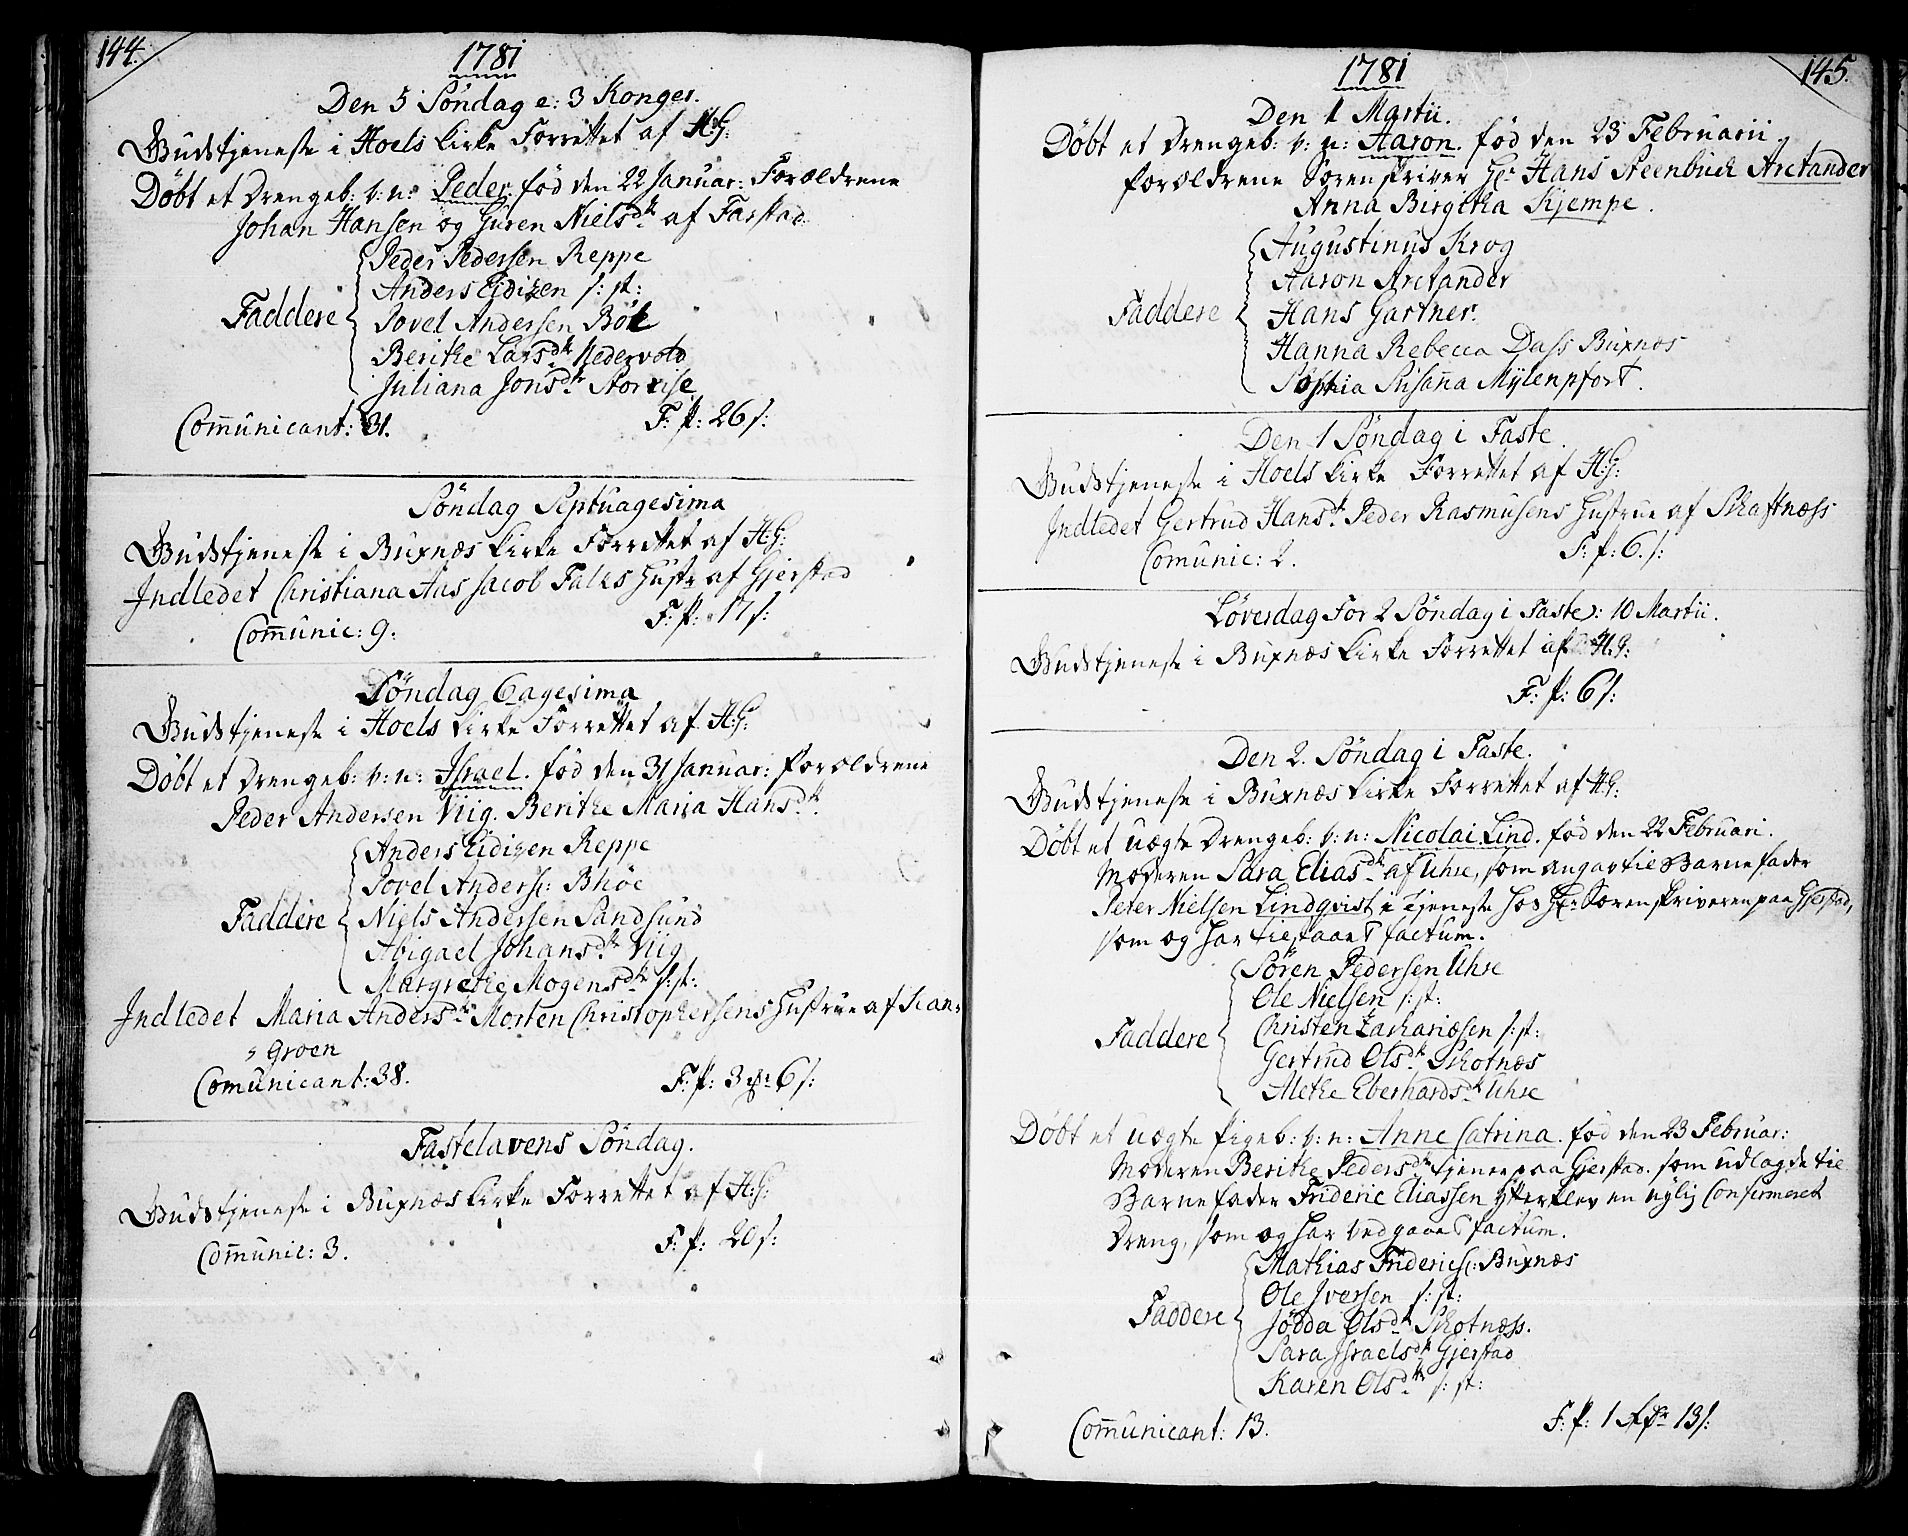 144.
1781
Den 5 Söndag e: 3 Konger.
Gudstjeneste i Hoels Kirke Forrettet af H:G:
Döbt et Drengeb: v: n: Peder. föd den 22 Januar: Forældrene
Johan Hansen og Guren Nielsdtr af Farstad
Peder Pedersen Reppe
Anders Eidizen s: st:
Faddere Povel Andersen Böe
Berithe Larsdtr Nedervold
Juliana Jonsdtr Storeise
Com̄unicant: 31. F: P: 26 s:
Söndag Septuagesima
Gudstjeneste i Buxnæs Kirke Forrettet af H:G:
Indledet Christiana Aas Jacob Falks Hustr af Gjerstad
Com̄unic: 9. F: P: 17 s:
Söndag 6agesima
Gudstjeneste i Hoels Kirke Forrettet af H:G:
Döbt et Drengeb: v: n: Israel. föd den 31 Januar: forældrene
Peder Andersen Viig. Berithe Maria Hansdtr.
Anders Eidizen Reppe
Povel Anders: Bhöe
Faddere Niels Andersen Sandsund
Abigael Johansdtr Viig
Margrethe Mogensdtr s: st:
Indledet Maria Andersdtr Morten Christophersens Hustrue af Gran-
groen
Comunicant: 38. F: P: 3 6 s:
Fastelavens Söndag.
Gudstjeneste i Buxnæs Kirke Forrettet af H:G:
Com̄unic: 3. F: P: 20 s:
145.
1781
Den 1 Martii.
Döbt et Drengeb: v: n: Aaron. föd den 23 Februarii
forældrene Sorenskriver Hr Hans Steenbuch Arctander
Anna Birgitha Kjempe.
Augustinus Krog
Aaron Arctander
Faddere Hans Gartner.
Hanna Rebecca Dass Buxnæs
Sophia Susan̄a Mÿlenpfort.
Den 1 Söndag i Faste.
Gudstjeneste i Hoels Kirke Forrettet af H:G:
Indledet Gertrud Hansdtr. Peder Rasmusens Hustrue af Skaftnæss
Comunic: 2. F: P: 6 s:
Löverdag For 2 Söndag i Faste: 10 Martii.
Gudstjeneste i Buxnæs Kirke Forrettet af H:G:
F: P: 6 s:
Den 2. Söndag i Faste.
Gudstjeneste i Buxnæs Kirke Forrettet af H:G:
Döbt et uægte Drengeb: v: n: Nicolai Lind. föd den 22 Februari.
Moderen Sara Eliasdtr af Uhre, som angav til Barnefader
Peter Nielsen Lindqvist i Tjeneste hos Hr Sorenskriveren paa Gjerstad,
som og har tilstaaet factum.
Sören Pedersen Uhre
Ole Nielsen s: st:
Faddere Christen Zachariæsen s: st:
Gertrud Olsdtr Skotnæs
Alethe Eberhardsdtr Uhre
Döbt et uægte Pigeb: v: n: Anne Catrina. föd den 23 Februar:
Moderen Berithe Pedersdtr tjener paa Gjerstad. som udlagde til
Barnefader Frideric Eliassen Ytterklev en nylig Confirmeret
Dreng, som og har vedgaaet factum.
Mathias Friderics: Buxnæs
Ole Iversen s: st:
Faddere Jödda Olsdtr Skotnæss.
Sara Israelsdtr Gjerstad
Karen Olsdtr s: st:
Com̄unicant: 13. F: P: 1 Rdr 13 s: